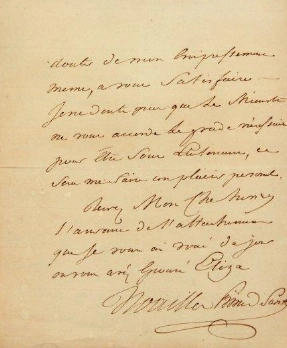 doutés de mon Empressement
meme, a vous Satisfaire
Je ne doute pas que Le Ministre
ne vous accorde Le grade nécessaire
pour Etre Sous Lieutenant, ce
Sera me faire un plaisir personel.
Recevez Mon Cher
L'assurance de L'attachement
que Je vous ai voué du jour
où vous avez Epousé Eliza
Noailles